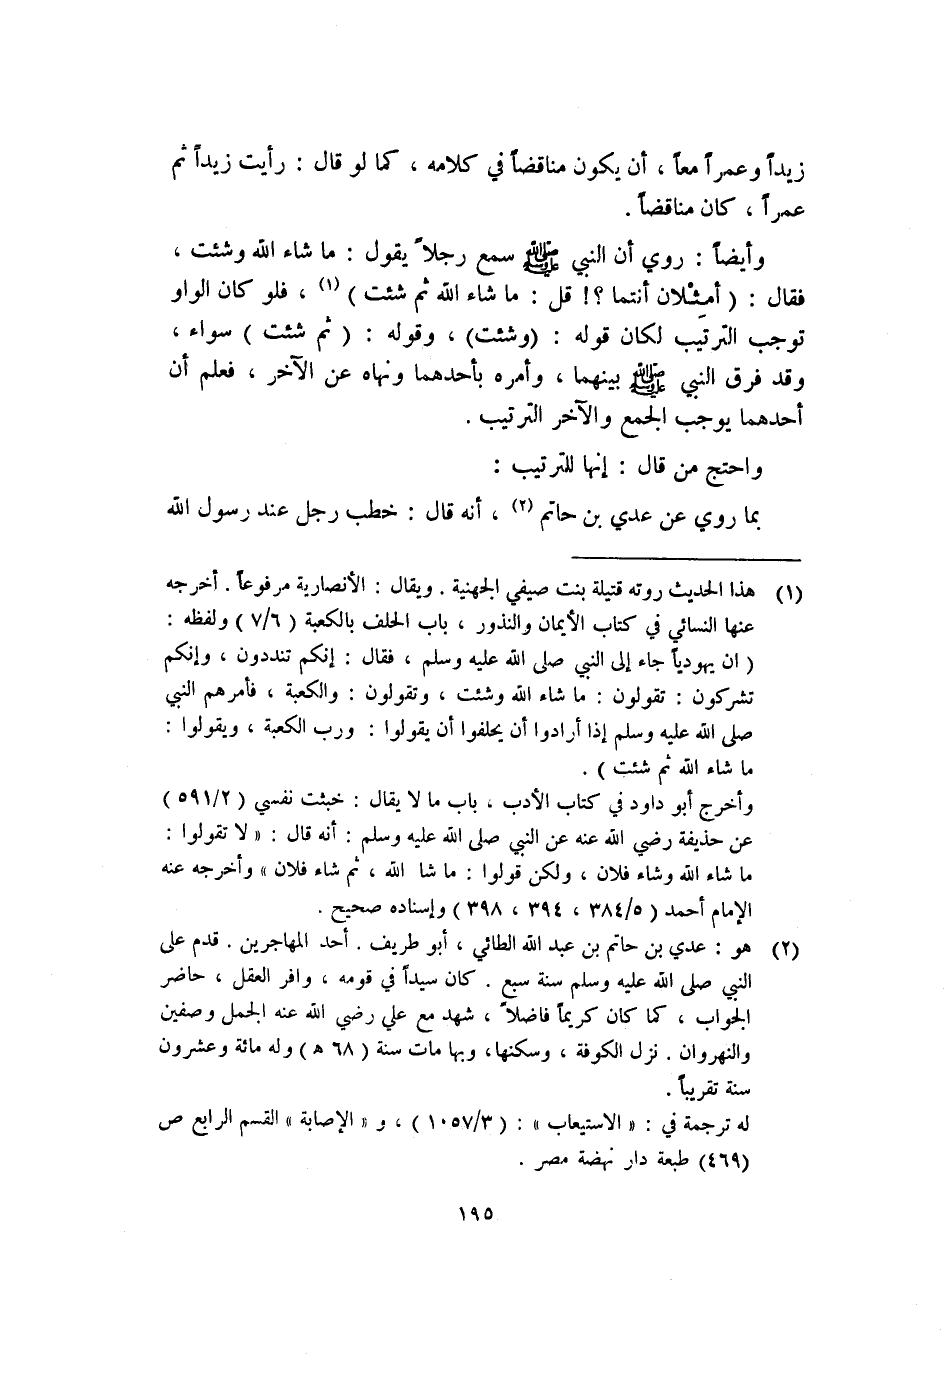 زيداً وعمراً معاً ، أن يكون مناقضاً في كلامه ، كما لو قال : رأيت زيداً ثم
عمراً ، كان مناقضاً .
وأيضاً : روي أن النبي ﷺ سمع رجلاً يقول : ما شاء الله وشئت ،
فقال : ( أمِثْلان أنتما ؟! قل : ما شاء الله ثم شئت ) (١) ، فلو كان الواو
توجب الترتيب لكان قوله : (وشئت) ، وقوله : ( ثم شئت ) سواء ،
وقد فرق النبي ﷺ بينهما ، وأمره بأحدهما ونهاه عن الآخر ، فعلم أن
أحدهما يوجب الجمع والآخر الترتيب .
واحتج من قال : إنها للترتيب :
بما روي عن عدي بن حاتم (٢) ، أنه قال : خطب رجل عند رسول الله
(١) هذا الحديث روته قتيلة بنت صيفي الجهنية . ويقال : الأنصارية مرفوعاً . أخرجه
عنها النسائي في كتاب الأيمان والنذور ، باب الحلف بالكعبة ( ٧/٦ ) ولفظه :
( ان يهودياً جاء إلى النبي صلى الله عليه وسلم ، فقال : إنكم تنددون ، وإنكم
تشركون : تقولون : ما شاء الله وشئت ، وتقولون : والكعبة ، فأمرهم النبي
صلى الله عليه وسلم إذا أرادوا أن يحلفوا أن يقولوا : ورب الكعبة ، ويقولوا :
ما شاء الله ثم شئت ) .
وأخرج أبو داود في كتاب الأدب ، باب ما لا يقال : خبثت نفسي ( ٥٩١/٢ )
عن حذيفة رضي الله عنه عن النبي صلى الله عليه وسلم : أنه قال : « لا تقولوا :
ما شاء الله وشاء فلان ، ولكن قولوا : ما شا الله ، ثم شاء فلان » وأخرجه عنه
الإمام أحمد ( ٣٨٤/٥ ، ٣٩٤ ، ٣٩٨ ) وإسناده صحيح .
(٢) هو : عدي بن حاتم بن عبد الله الطائي ، أبو طريف . أحد المهاجرين . قدم على
النبي صلى الله عليه وسلم سنة سبع . كان سيداً في قومه ، وافر العقل ، حاضر
الجواب ، كما كان كريماً فاضلاً ، شهد مع علي رضي الله عنه الجمل وصفين
والنهروان . نزل الكوفة ، وسكنها، وبها مات سنة ( ٦٨ ه ) وله مائة وعشرون
سنة تقريباً .
له ترجمة في : « الاستيعاب » : ( ١٠٥٧/٣ ) ، و « الإصابة » القسم الرابع ص
(٤٦٩) طبعة دار نهضة مصر .
١٩٥